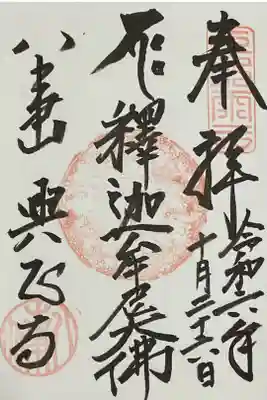 奉拝
令和六年
十月二十六日
釋迦牟尼大佛
八事山 興正寺